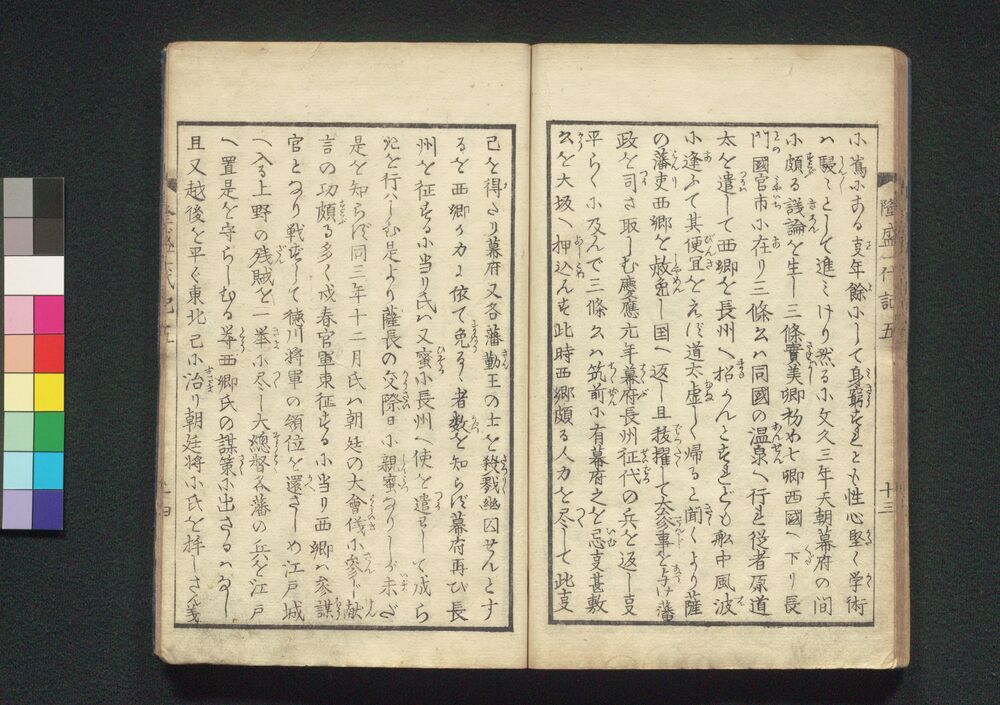 隆盛一代記 五
十三
小嶌にある支年餘にして身窮すれとも性心堅く学術
ハ駸々として進ミけり然るに文久三年天朝幕府の間
に頗る議論を生し三條實美卿初め七卿西國へ下り長
門國宮市に在り三條公ハ同國の温泉へ行れ従者原道
太を遣して西郷を長州へ招かんとすれども舩中風波
に逢ふて其便宜をえず道太虚しく帰ると聞くより薩
の藩吏西郷を赦免し国へ返し且抜擢して大参事を与け藩
政を司さ取しむ慶應元年幕府長州征代の兵を返し支
平らくに及んで三條公ハ筑前に有幕府之を忌支甚敷
公を大坂へ押込んす此時西郷頗る人力を尽して此支
已を得たり幕府又各藩勤王の士を殺戮幽囚せんとす
るを西郷か力に依て免るゝ者数を知らず幕府再び長
州を征するに当り氏ハ又蜜に長州へ使を遣ハして成ら
が是を行ハしむ是より薩長の交際日に親密なりしが未だ
是を知らず同三年十二月氏ハ朝廷の大會儀に參し献
言の功頗る多く戊春官軍東征するに当り西郷ハ参謀
官となり戦すして徳川将軍の領位を還さしめ江戸城
へ入る上野の残賊を一挙に尽し大總督各藩の兵を江戸
へ置是を守らしむる等西郷氏の謀策に出さるハなし
且又越後を平ぐ東北已に治り朝廷将に氏を拝しさ
十四